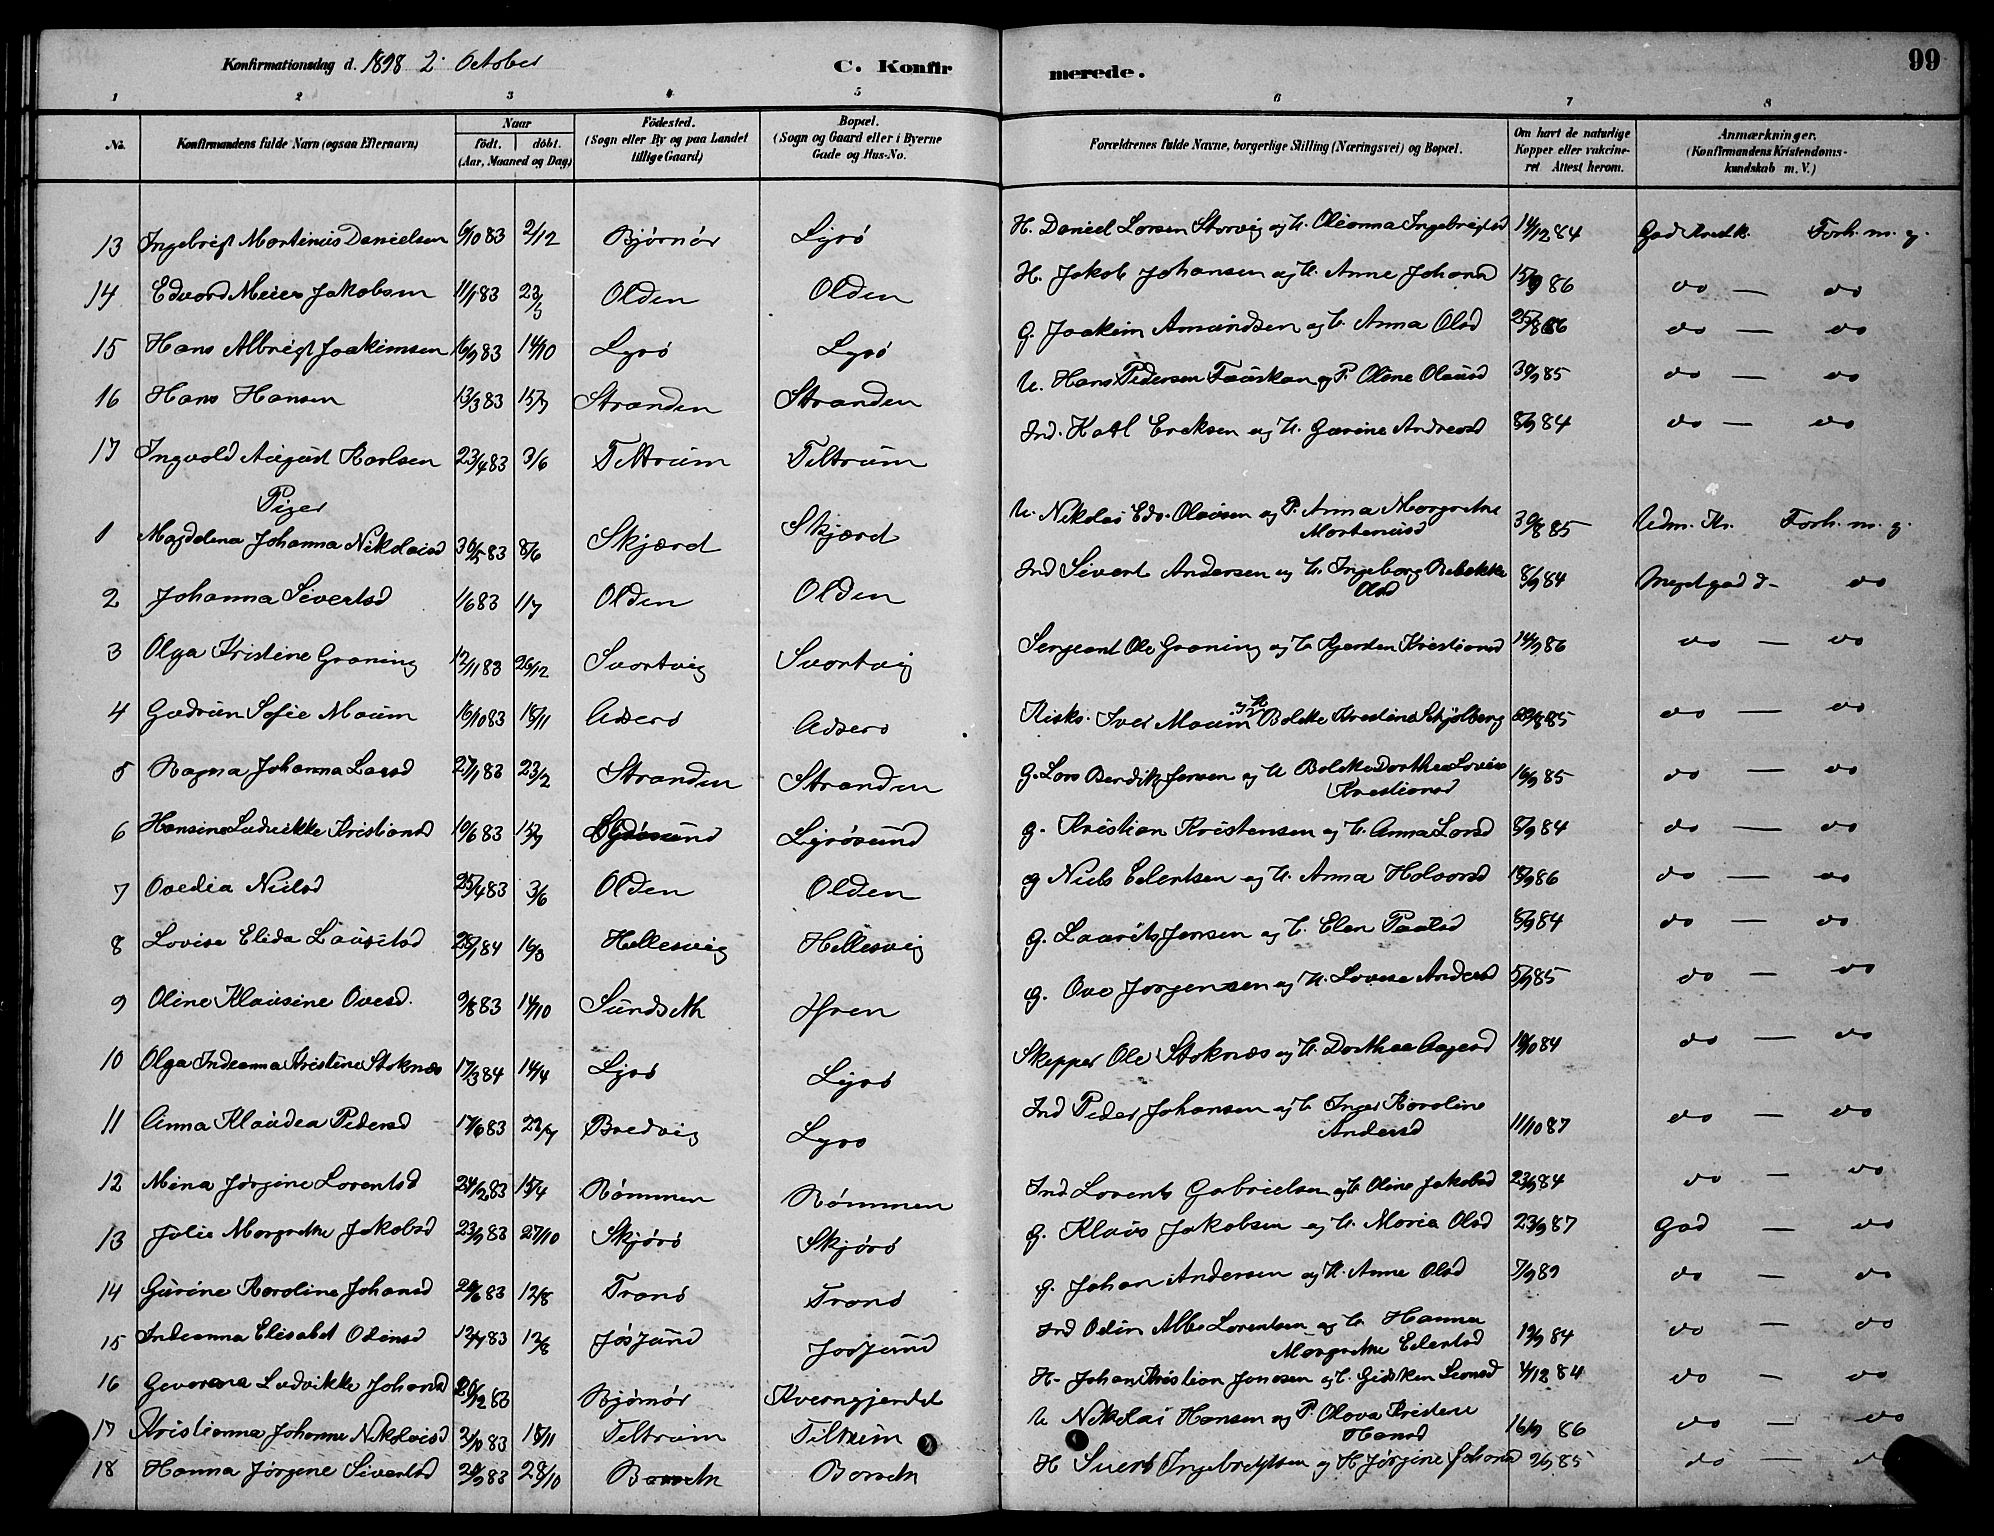 Konfirmationsdag d. 1898 2. October C. Konfirmerede. 99
1 2 3 4 5 6 7 8
No. Konfirmandens fulde Navn (ogsaa Efternavn) Naar födt. döbt. (Aar, Maaned og Dag) Födested. (Sogn eller By og paa Landet tillige Gaard) Bopæl. (Sogn og Gaard eller i Byerne Gade og Hus-No. Forældrenes fulde Navne, borgerlige Stilling (Næringsvei) og Bopæl. Om havt de naturlige Kopper eller vakcineret Attest herom. Anmærkninger. (Konfirmandens Kristendomskundskab m. V.)
13 Ingebrigt Martinus Danielsen 6/10 83 2/12 Bjørnør Lysø H. Daniel Larsen Storvig og H. Oleanna Ingebrigtsd 14/12 84 God Kredk. Forh. m. g.
14 Edvard Meier Jakobsen 11/1 83 23/3 Olden Olden H. Jakob Johansen og H. Anne Johansd 15/9 86 do — do
15 Hans Albrigt Joakimsen 16/9 83 14/10 Lysø Lysø G. Joakim Amundsen og H. Anna Olsd 25/8 86 do — do
16 Hans Hansen 13/3 83 15/7 Stranden Stranden U. Hans Pedersen Fauskan og P. Oline Olausd 30/9 85 do — do
17 Ingvald August Karlsen 23/4 83 3/6 Teltrum Teltrum Ind. Karl Eriksen og H. Gurine Andreasd 8/9 84 do — do
Piger
1 Magdalena Johanna Nikolaisd 30/5 83 8/6 Skjærd Skjærd U. Nikolai Edv. Olausen og P. Anna Margrethe Martinusd 30/8 85 Udm. Kr. Forh. m. g.
2 Johanna Sivertsd 1/6 83 1/7 Olden Olden Ind Sivert Andersen og H. Ingeborg Rebekka Olsd 8/9 84 Meget god d— do
3 Olga Kristine Graning 12/11 83 26/12 Svartvig Svartvig Sergeant Ole Graning og H. Kjersten Kristiansd 14/9 86 do — do
4 Gudrun Sofie Maum 16/10 83 18/11 Adserø Adserø Kirks. Iver Maum og H. Bolette Kristine Schjølberg 8/85 do — do
5 Ragna Johanna Larsd 27/1 83 23/2 Stranden Stranden G. Lars Bendik Jensen og H Bolette Dorthea Lovise Kristiansd 16/9 85 do — do
6 Hansine Ludvikke Kristiansd 10/6 83 15/7 Lysøsund Lysøsund G. Kristian Kristensen og H. Anna Larsd 8/9 84 do — do
7 Ovedia Nielsd 25/4 83 3/6 Olden Olden G Niels Eilertsen og H. Anna Halvorsd 18/9 86 do — do
8 Lovise Elida Lauritsd 28/1 84 16/3 Hellesvig Hellesvig G. Laurits Jensen og H. Elen Paulsd 8/9 84 do — do
9 Oline Klausine Ovesd. 9/8 83 14/10 Sundseth Hren G. Ove Jørgensen og H. Lovise Andersd 5/9 85 do — do
10 Olga Indianna Kristine Stoknæs 17/3 84 14/4 Lysø Lysø Skepper Ole Stoknæs og H. Dorthea Aagesd 14/10 84 do — do
11 Anna Klaudea Pedersd 17/6 83 22/7 Bredvig Lysø Ind Peder Johansen og H. Inger Karoline Andersd 11/10 87 do — do
12 Mina Jørgine Lorentsd 24/2 83 15/4 Rømmen Rømmen Ind Lorents Gabrielsen og H. Oline Jakobsd 23/9 84 do — do
13 Julie Margrethe Jakobsd 23/9 83 27/10 Skjørø Skjørø G. Klaus Jakobsen og H. Maria Olsd 23/9 87 God — do
14 Gurine Karoline Johansd 24/6 83 12/8 Tranø Tranø G. Johan Andersen og H. Anne Olsd 7/9 89 do — do
15 Indianna Elisabet Odinsd 12/7 83 12/8 Jøssund Jøssund Ind Odin Alb. Lorentsen og H. Hanna Margrethe Eilertsd 19/9 84 do — do
16 Ludvikke Johansd 26/12 83 Bjørnør Kverngjerdet H. Johan Kristian Jonasen og H. Gidsken Leonsd 4/12 84 do — do
17 Kristianna Johanne Nikolaisd 2/10 83 18/11 Teltrum Teltrum U Nikolai Hansen og P. Olava Kristine Hansd 16/9 86 do — do
18 Hanna Jørgine Sivertsd 20/9 83 28/10 Barseth Barseth H Sivert Ingebrigtsen og H Jørgine Johansd 2/9 85 do — do